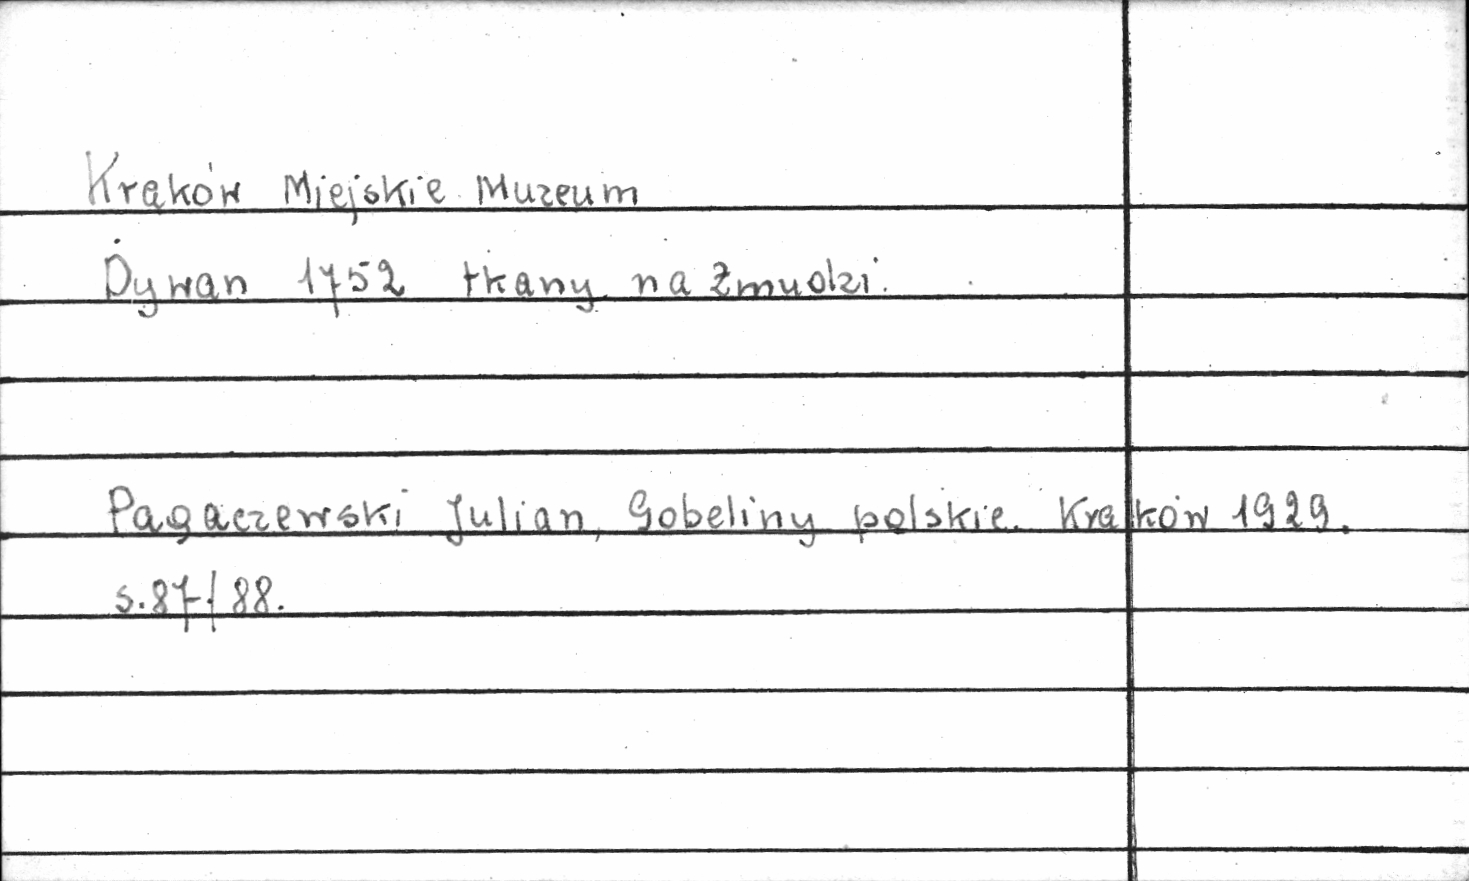 Kraków Miejskie Muzeum
Dywan 1752 tkany na Żmudzi.
Pagaczewski Julian, Gobeliny polskie. Kraków 1929.
s.87/88.